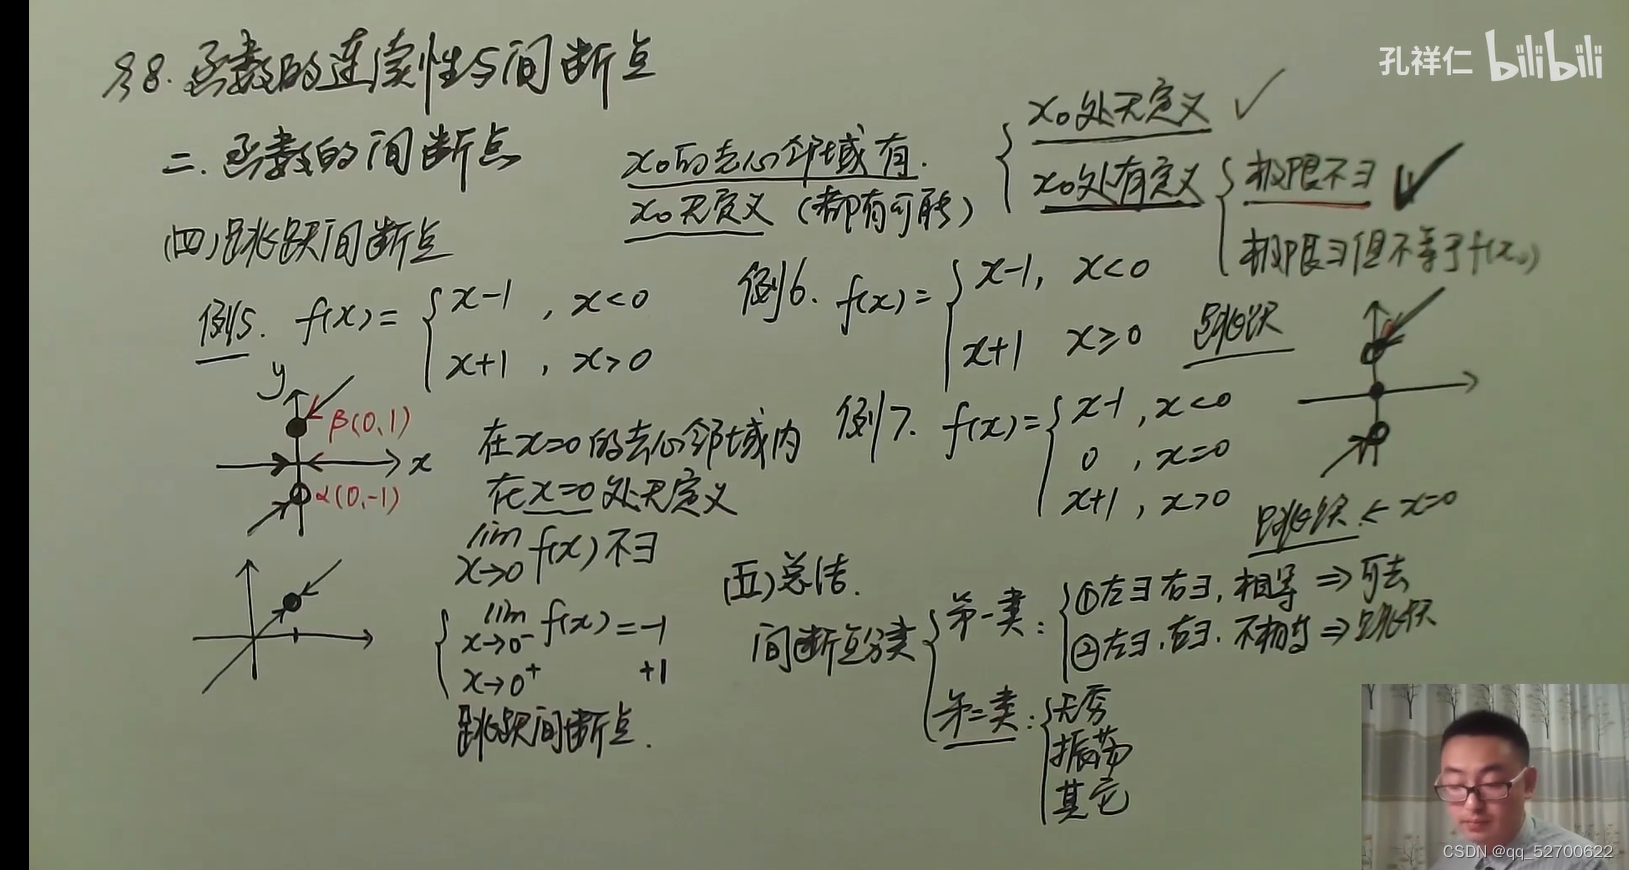 孔祥仁 bilibili
§8. 函数的连续性与间断点
二. 函数的间断点
x₀的去心邻域有.
x₀无定义 (都有可能)
x₀处无定义 ✓
x₀处有定义
极限不∃ ✓
极限∃但不等于f(x₀)
(四)跳跃间断点
例5. f(x)=
x-1 , x<0
x+1 , x>0
例6. f(x)=
x-1, x<0
x+1 x≥0
跳跃
y
β(0,1)
x
α(0,-1)
在x=0的去心邻域内
在x=0处无定义
lim f(x)不∃
x→0
lim f(x)=-1
x→0⁻
x→0⁺ +1
跳跃间断点.
例7. f(x)=
x-1 , x<0
0 , x=0
x+1 , x>0
跳跃 ← x=0
(五)总结.
间断点分类
第一类:
①左∃右∃, 相等 ⇒ 可去
②左∃.右∃. 不相等 ⇒ 跳跃
第二类:
无穷
振荡
其它
CSDN @qq_52700622